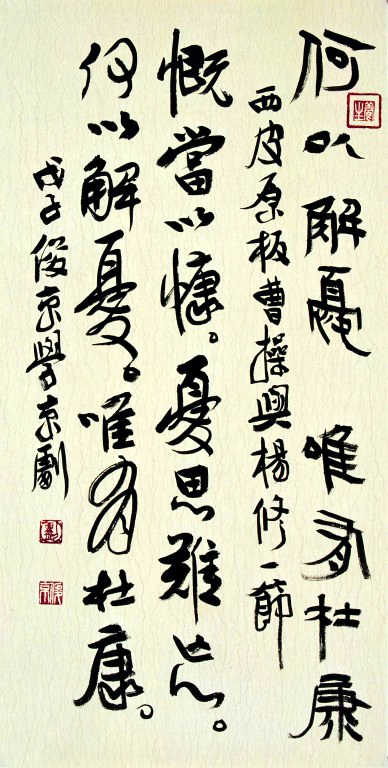 何以解憂 唯有杜康
西皮原板曹操與楊修一節
慨當以慷。憂思難忘。
何以解憂。唯有杜康。
戊子俊京學京劇